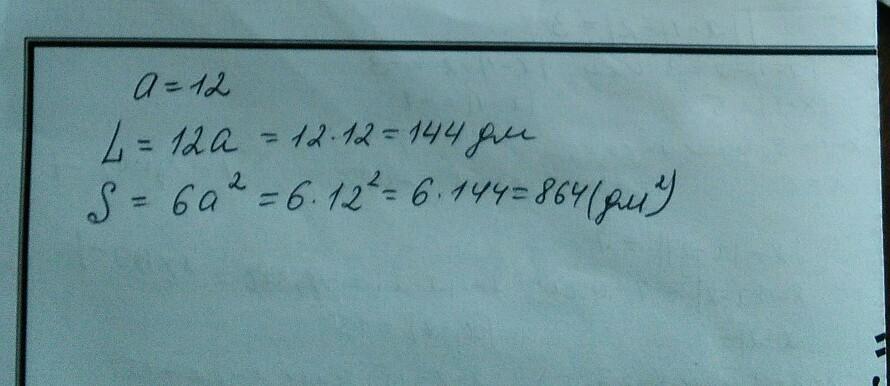 a = 12
L = 12a = 12·12 = 144 дм
S = 6a² = 6·12² = 6·144 = 864 (дм²)